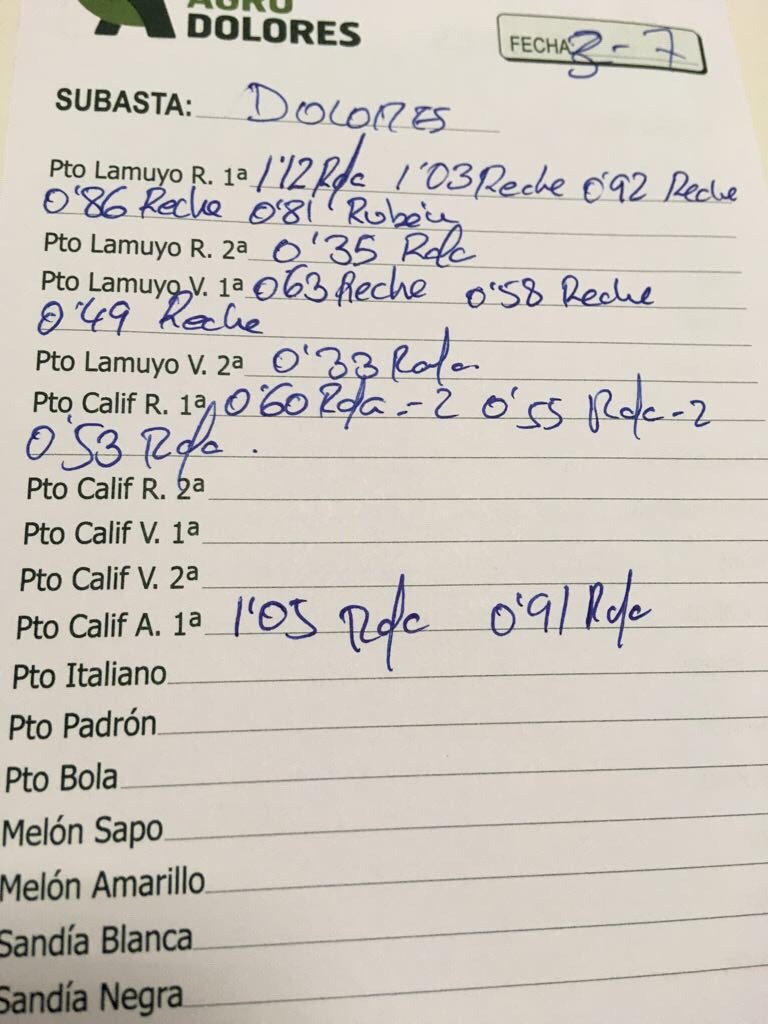 AGRO
DOLORES
FECHA: 3-7
SUBASTA: DOLORES
Pto Lamuyo R. 1ª 1'12 Rda 1'03 Reche 0'92 Reche
0'86 Reche 0'81 Rubén
Pto Lamuyo R. 2ª 0'35 Rda
Pto Lamuyo V. 1ª 063 Reche 0'58 Reche
0'49 Reche
Pto Lamuyo V. 2ª 0'33 Rda.
Pto Calif R. 1ª 0'60 Rda.-2 0'55 Rda-2
0'53 Rda.
Pto Calif R. 2ª
Pto Calif V. 1ª
Pto Calif V. 2ª
Pto Calif A. 1ª 1'05 Rda 0'91 Rda
Pto Italiano
Pto Padrón
Pto Bola
Melón Sapo
Melón Amarillo
Sandía Blanca
Sandía Negra